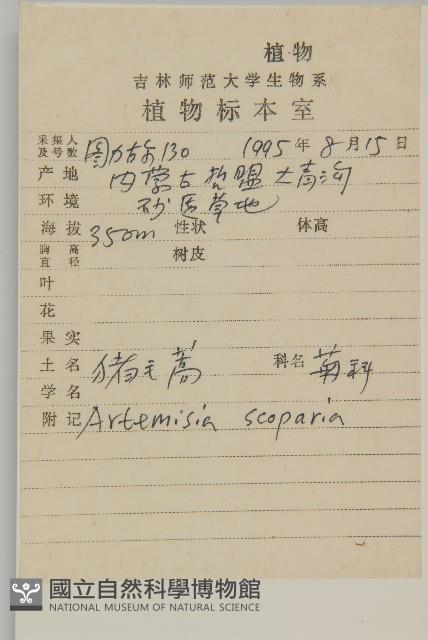 植物
吉林师范大学生物系
植物标本室
采集人及号数 图力古尔130 1995年8月15日
产地 内蒙古哲盟大青沟
环境 砂质草地
海拔 350m 性状 体高
胸高直径 树皮
叶
花
果实
土名 猪毛蒿 科名 菊科
学名
附记 Artemisia scoparia
國立自然科學博物館
NATIONAL MUSEUM OF NATURAL SCIENCE